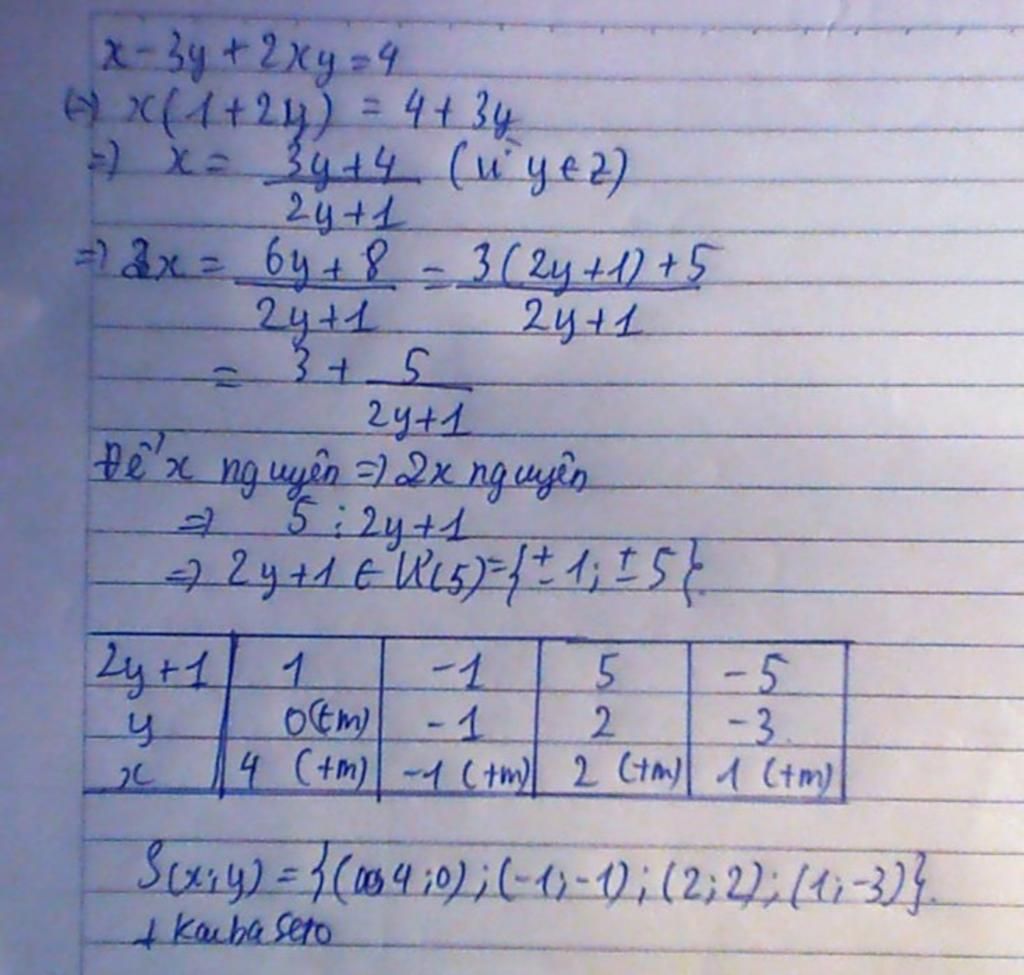 x - 3y + 2xy = 4
(=) x(1+2y) = 4 + 3y
=) x = (3y+4)/(2y+1) (vì y ∈ Z)
=) 2x = (6y+8)/(2y+1) = (3(2y+1)+5)/(2y+1)
= 3 + 5/(2y+1)
Để x nguyên =) 2x nguyên
=) 5 ⋮ 2y+1
=) 2y+1 ∈ Ư(5) = {±1; ±5}.
2y+1 1 -1 5 -5
y 0(tm) -1 2 -3
x 4 (tm) -1 (tm) 2 (tm) 1 (tm)
S(x;y) = {(4;0); (-1;-1); (2;2); (1;-3)}.